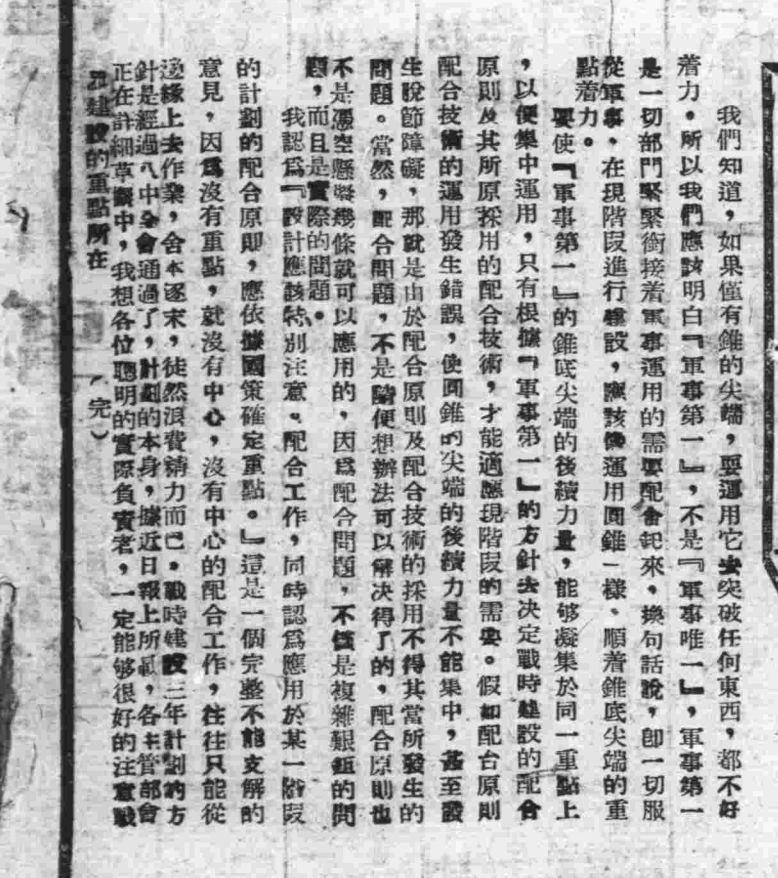 我們知道，如果僅有錐的尖端，要運用它去突破任何東西，都不好
着力。所以我們應該明白『軍事第一』，不是『軍事唯一』，軍事第一
是一切部門緊緊銜接着軍事運用的需要配合起來。換句話說，卽一切服
從軍事，在現階段進行建設，應該像運用圓錐一樣，順着錐底尖端的重
點着力。
要使『軍事第一』的錐底尖端的後續力量，能够凝集於同一重點上
，以便集中運用，只有根據『軍事第一』的方針去決定戰時建設的配合
原則及其所原採用的配合技術，才能適應現階段的需要。假如配合原則
配合技術的運用發生錯誤，使圓錐的尖端的後續力量不能集中，甚至發
生脫節障礙，那就是由於配合原則及配合技術的採用不得其當所發生的
問題。當然，配合問題，不是隨便想辦法可以解决得了的，配合原則也
不是憑空懸擬幾條就可以應用的，因爲配合問題，不僅是複雜艱鉅的問
題，而且是實際的問題。
我認爲『設計應該特別注意。配合工作，同時認爲應用於某一階段
的計劃的配合原則，應依據國策確定重點。』這是一個完整不能支解的
意見，因爲沒有重點，就沒有中心，沒有中心的配合工作，往往只能從
邊緣上去作業，舍本逐末，徒然浪費精力而已。戰時建設三年計劃的方
針是經過八中全會通過了，計劃的本身，據近日報上所載，各主管部會
正在詳細草擬中，我想各位聰明的實際負責者，一定能够很好的注意戰
建設的重點所在
（完）